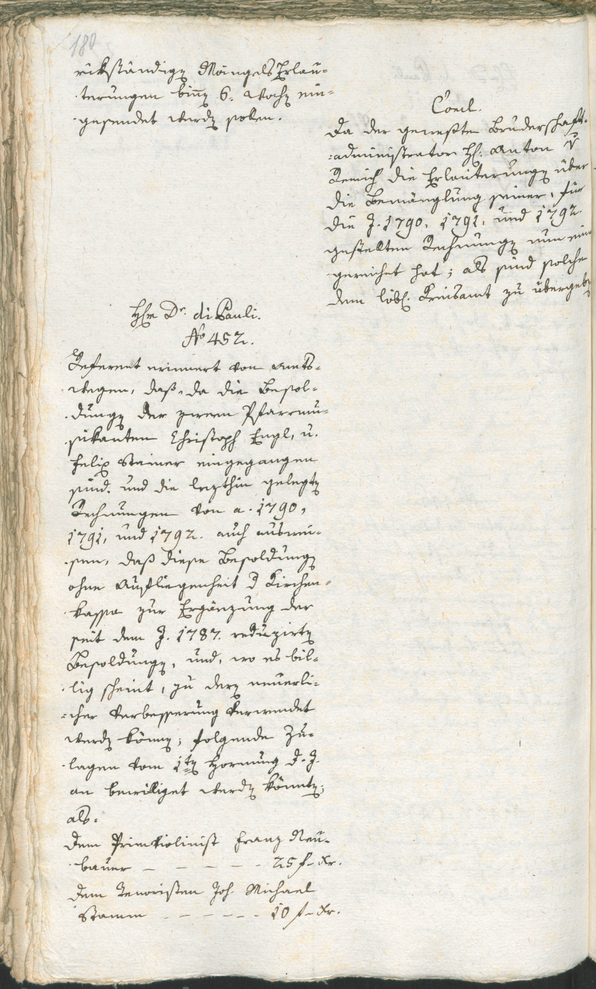 180
rükständigen Mängels Erlau-
terungen binnen 6. Wochen ein-
gesendet werden sollen.
Concl.
Da der gewesste Bruderschafts-
administrator Hl. Anton v.
Remich die Erleuterungen über
die Bemänglung seiner, für
die J. 1790, 1791, und 1792
gestellten Rechnungen nun ein
gereichet hat; als sind solche
dem löbl. Kreisamt zu übergeben
Hhr Dr. di Pauli.
No 452.
Referent erinnert von Amts-
wegen, daß, da die Besol-
dungen der zween Pfarrmu-
sikanten Christoph Engl, u.
Felix Steiner eingegangen
sind. und die lezthin gelegten
Rechnungen von a. 1790,
1791, und 1792. auch auswei-
sen, daß diese Besoldungen
ohne Aufliegenheit d Kirchen-
kassa zur Ergänzung der
seit dem J. 1787. reduzirten
Besoldungen, und, wo es bil-
lig scheint, zu deren neuerli-
cher Verbesserung verwendet
werden können; folgende Zu-
lagen vom 1ten Hornung d. J.
an bewilliget werden könnten;
als.
dem Primviolinist Franz Neu-
bauer – – – – – 25 f – Xr.
dem Tenoristen Joh. Michael
Stamm – – – – 10 f – Xr.